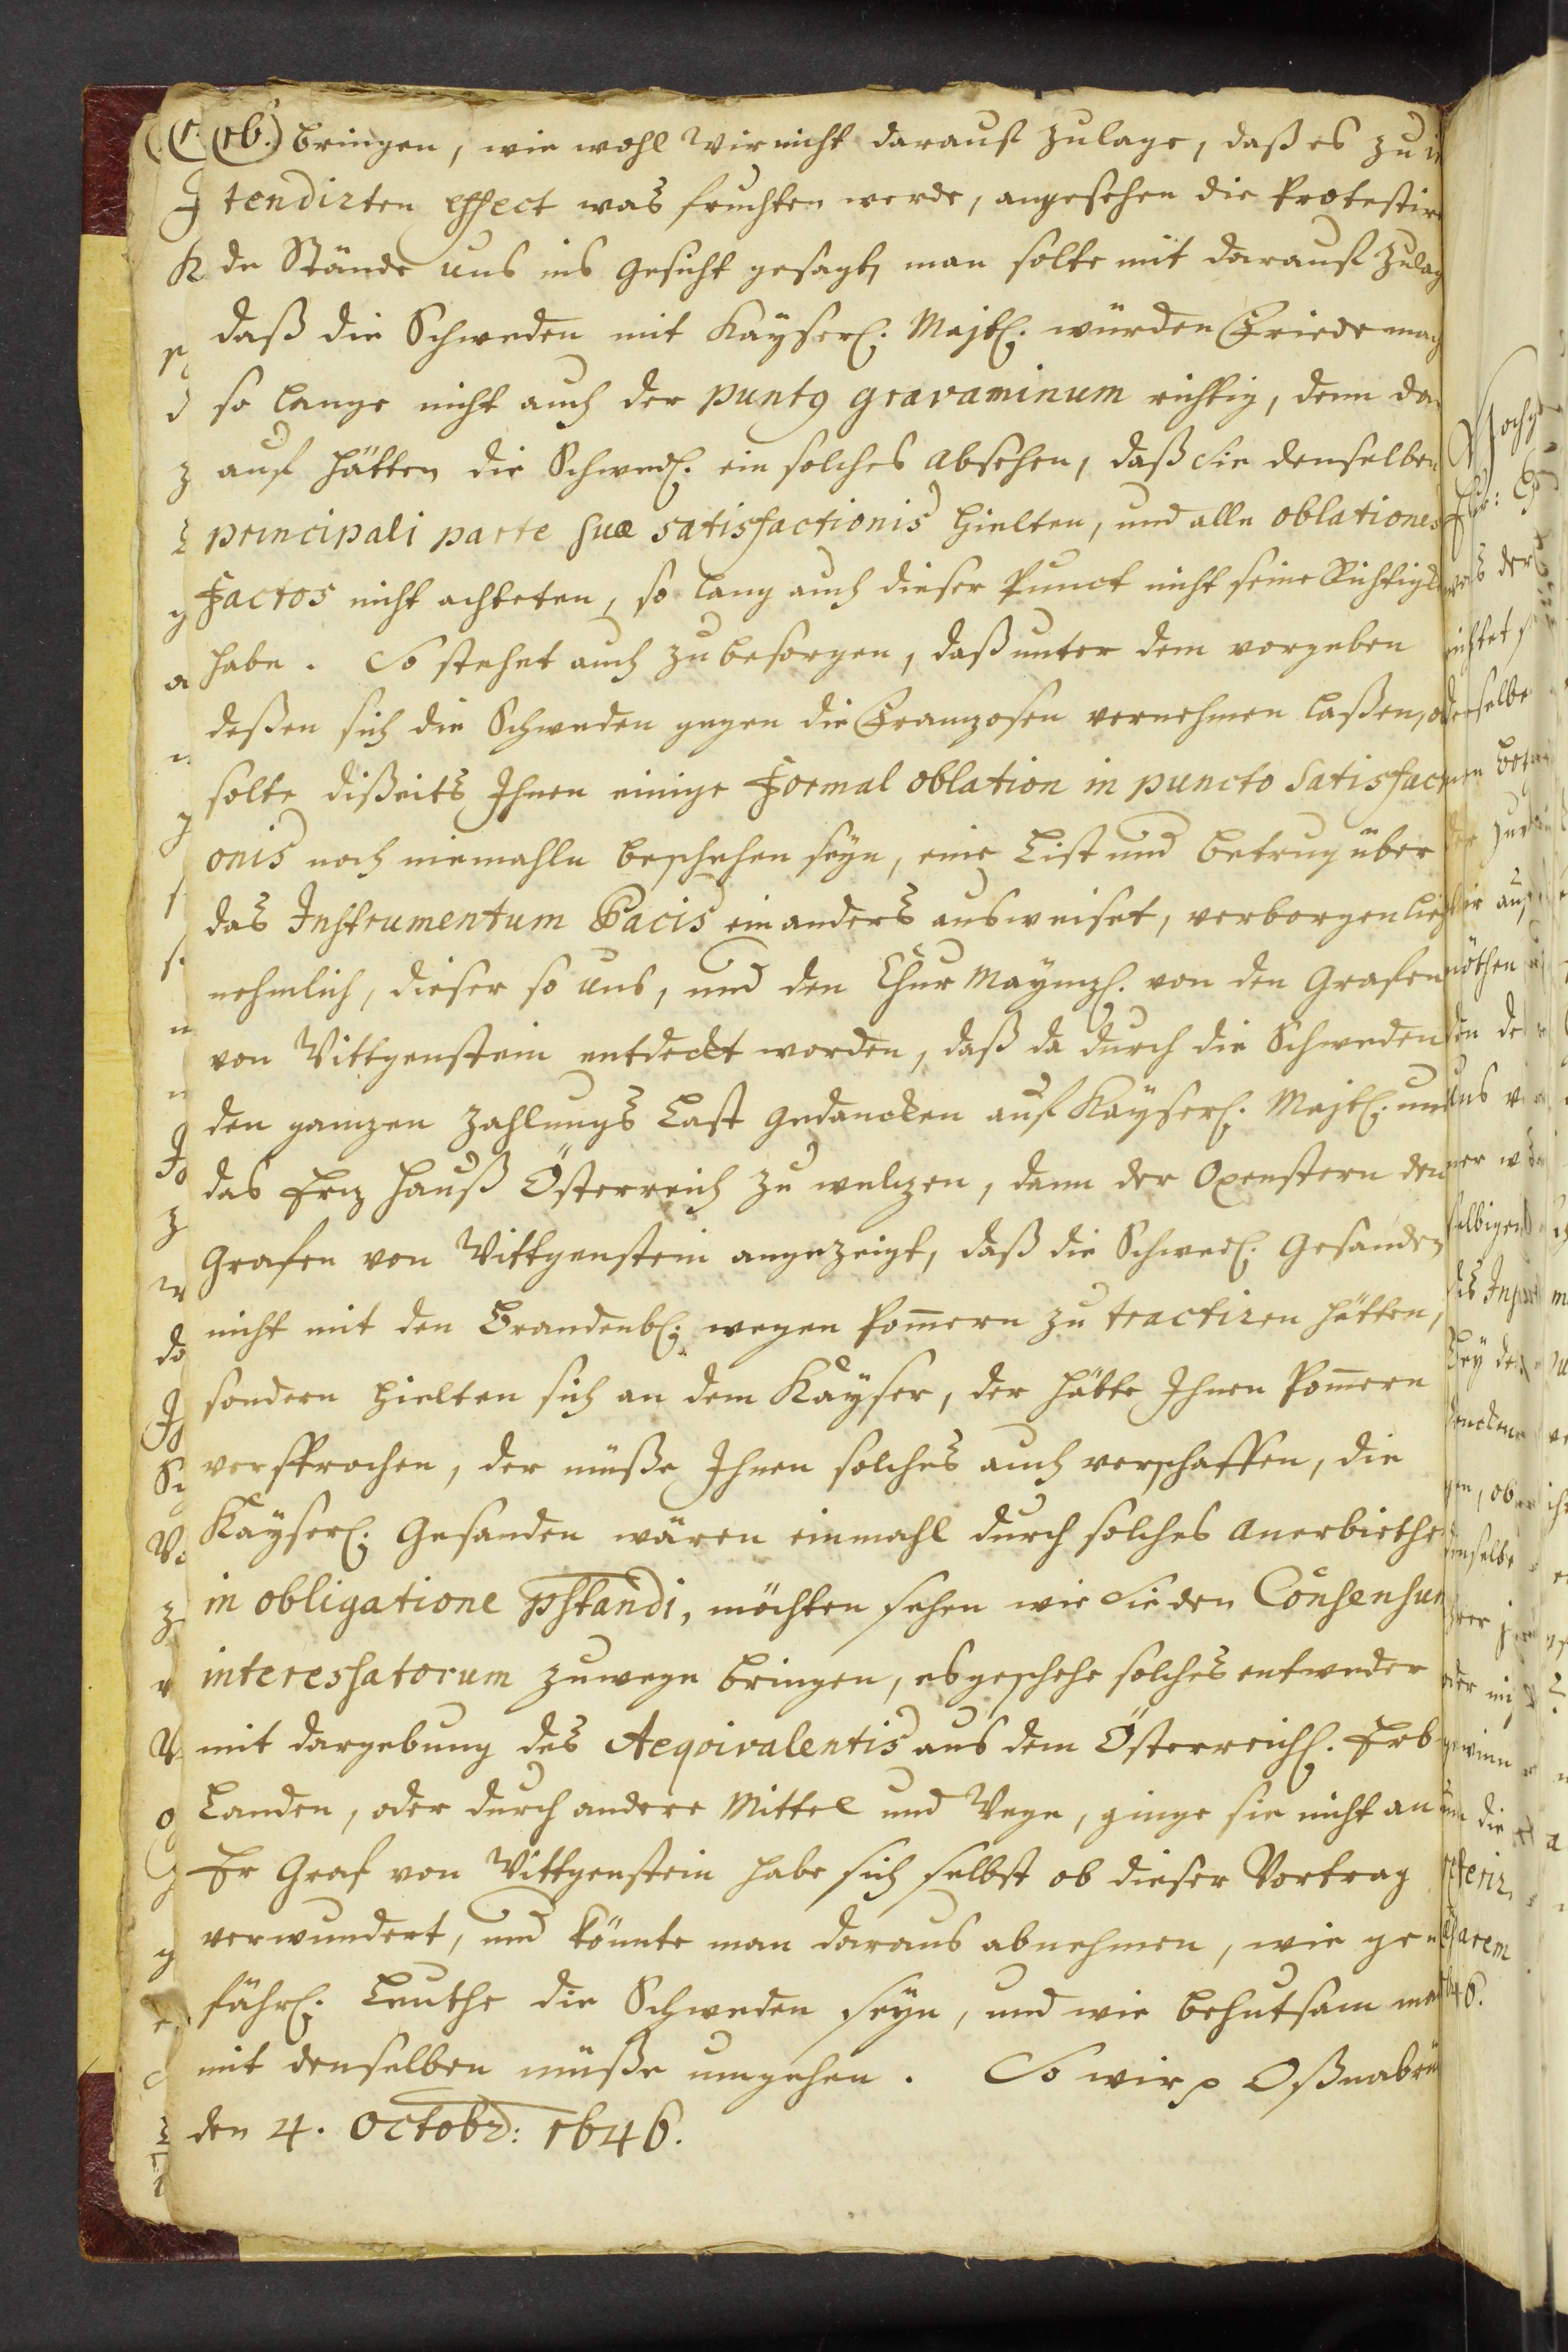 (16.) bringen, wie wohl Wir nicht darauf zulage, daß es zu i
tendirten effect was fruchten werde, angesehen die Protestire
de Stände uns ins gesicht gesagt, man solte nit darauf zulag
daß die Schweden mit Kayserl. Majtl. würden Friede mach
so lange nicht auch der punct9 gravaminum richtig, denn da
auf hätten die Schwedl. ein solches absehen, daß sie denselben
principali parte suae satisfactionis hielten, und alle oblationes
Factos nicht achteten, so lang auch dieser Punct nicht seine Richtigk
habe. So stehet auch zu besorgen, daß unter dem vorgeben
deßen sich die Schweden gegen die Franzosen vernehmen laßen,
solte dißeits Ihnen einige Formal oblation in puncto satisfac
onis noch niemahln beschehen seyn, eine List und betrug über
das Instrumentum Pacis ein anders ausweiset, verborgen lieg
nehmlich, dieser so uns, und den Chur Maynzl. von den Grafen
von Wittgenstein entdeckt worden, daß da durch die Schweden
den ganzen zahlungs Last gedancken auf Kayserl. Majtl. und
das Erz Hauß Österreich zu welzen, dann der Oxenstern den
Grafen von Wittgenstein angezeigt, daß die Schwedl. Gesanden
nicht mit den Brandenbl. wegen Pom̄ern zu tractiren hätten,
sondern hielten sich an dem Kayser, der hätte Ihnen Pom̄ern
versprochen, der müße Ihnen solches auch verschaffen, die
Kayserl. Gesanden wären einmahl durch solches anerbiethe
in obligatione pstandi, möchten sehen wie sie den Consensum
interessatorum zuwege bringen, es geschehe solches entweder
mit dargebung des Aeqvivalentis aus dem Österreichl. Erb
Landen, oder durch andere Mittel und Wege, ginge sie nicht an
Er Graf von Wittgenstein habe sich selbst ob dieser Vortrag
verwundert, und könnte man daraus abnehmen, wie ge
fährl. Leuthe die Schweden seyn, und wie behutsam man
mit denselben müße umgehen. So wir p Oßnabrü
den 4. Octobr: 1646.